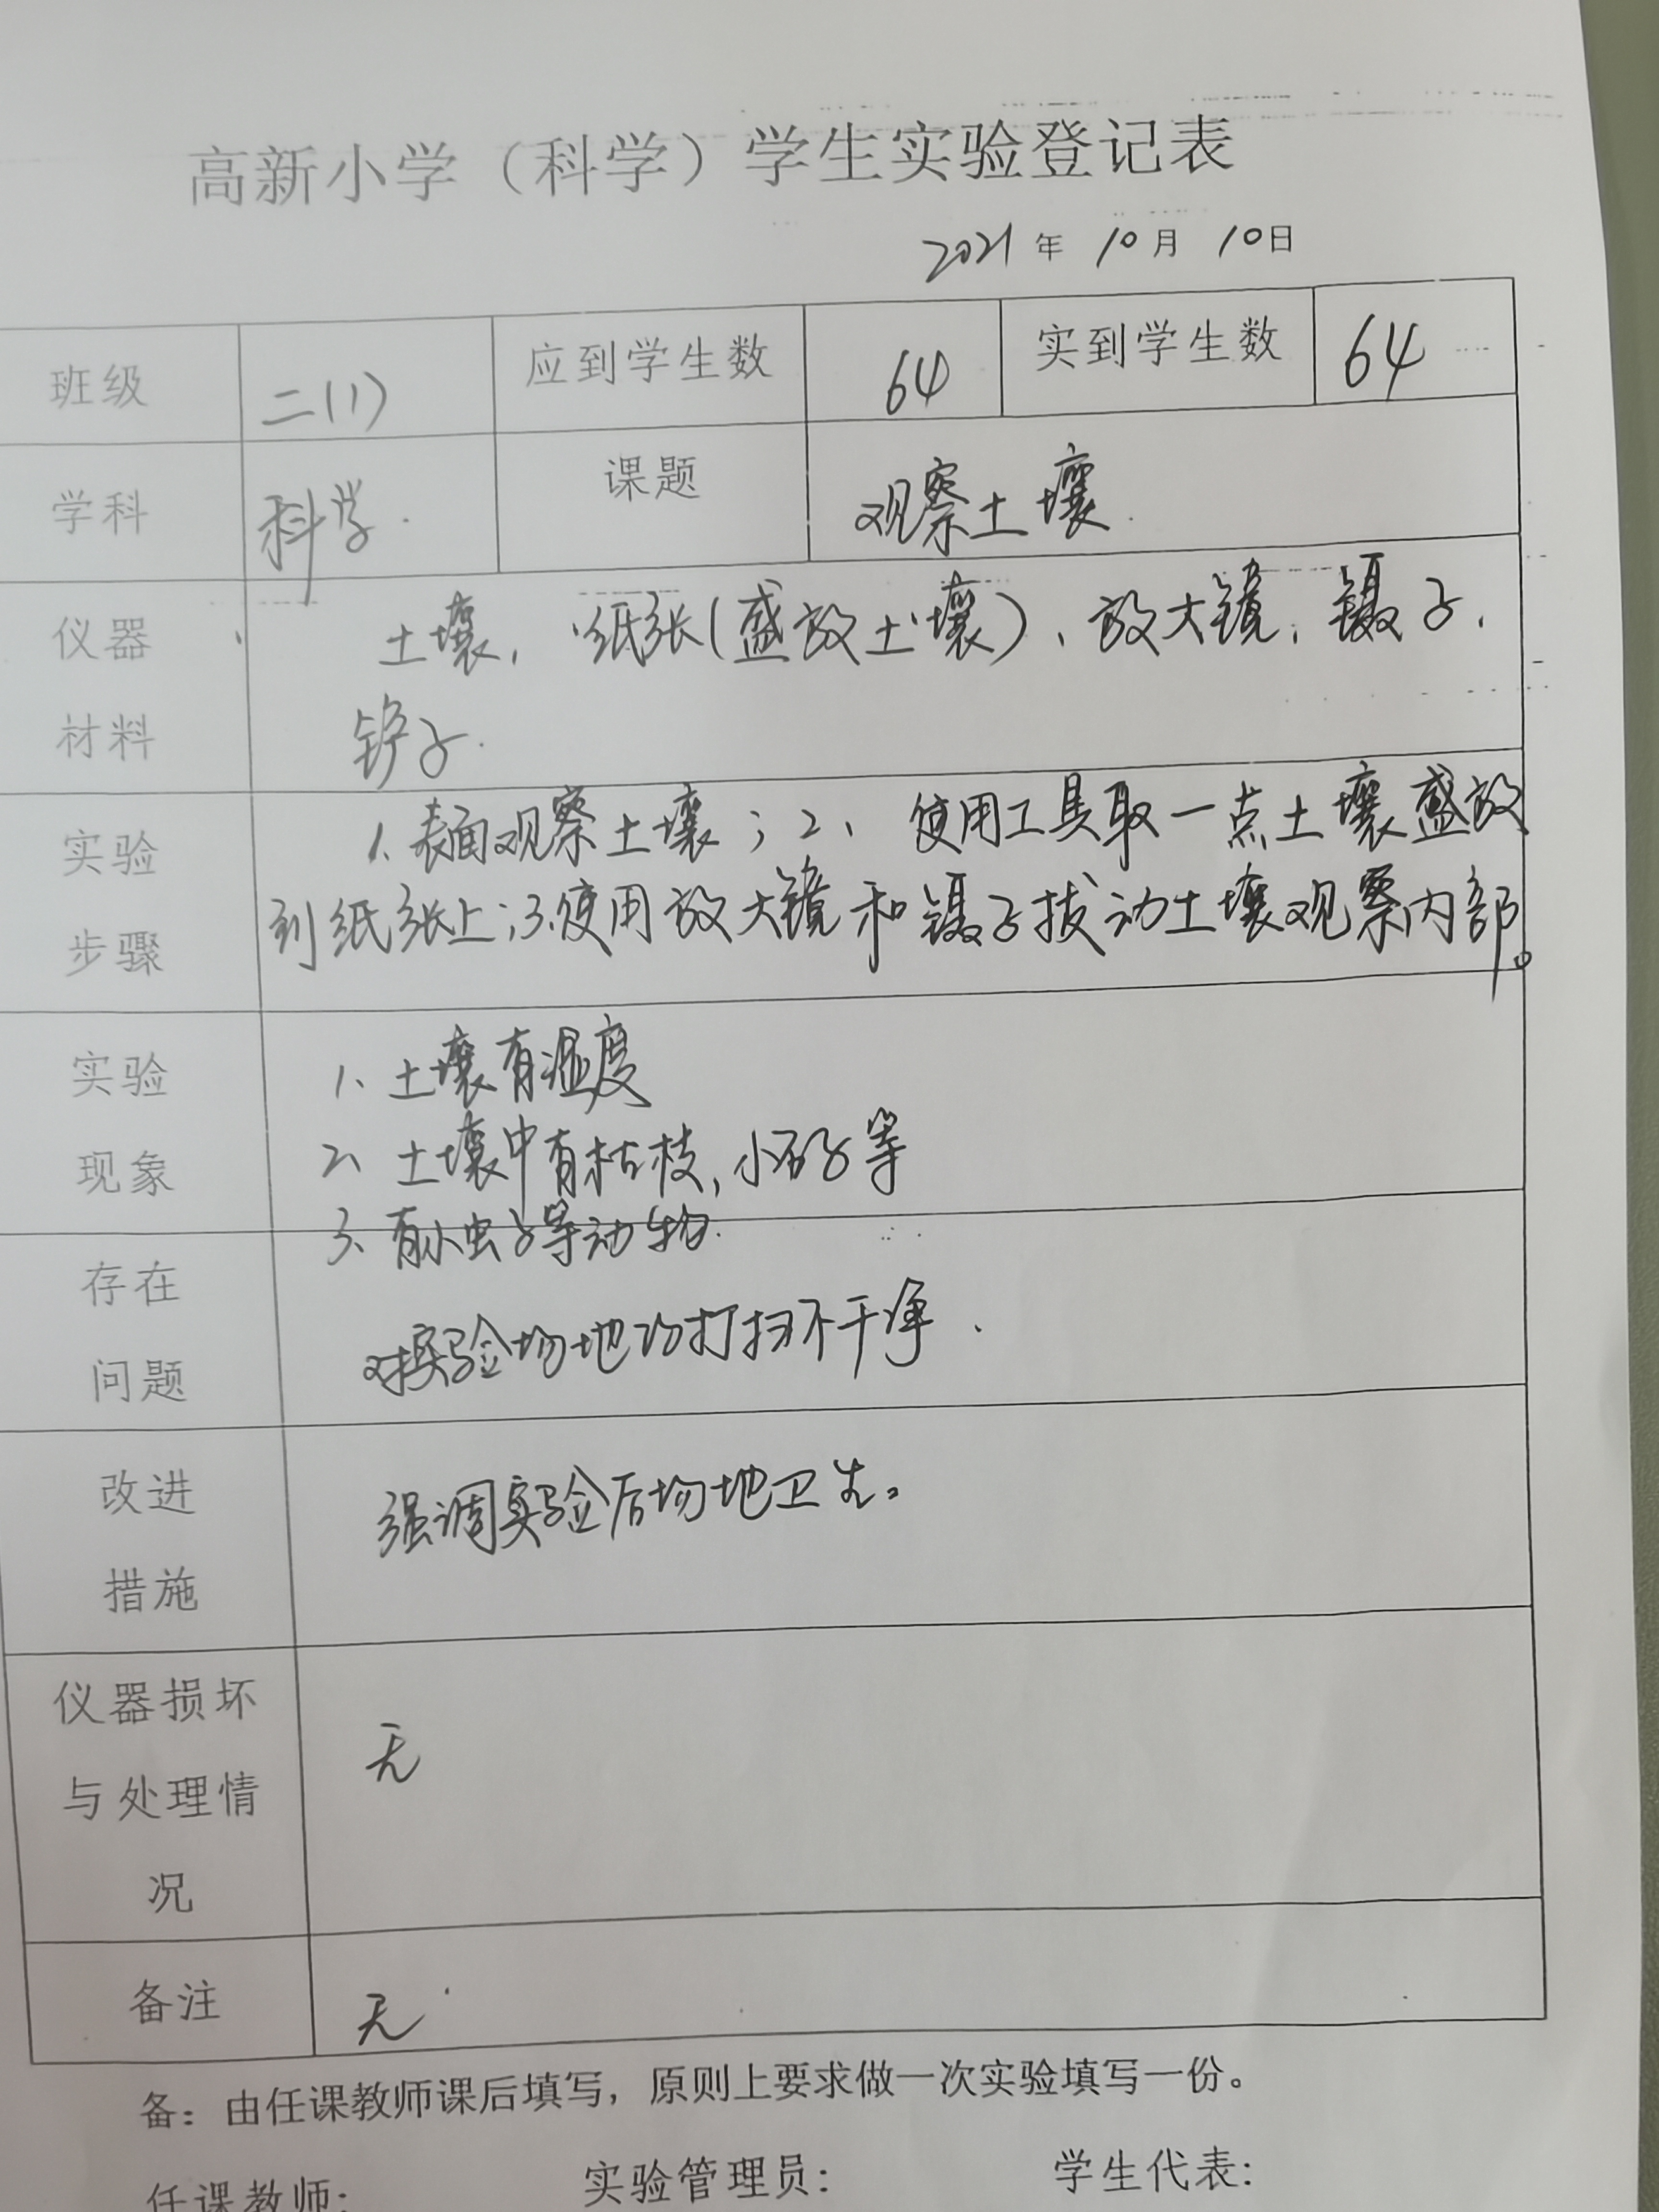 高新小学（科学）学生实验登记表
2021年 10月 10日
班级 二(1) 应到学生数 64 实到学生数 64
学科 科学. 课题 观察土壤.
仪器 土壤、纸张(盛放土壤)、放大镜、镊子、
材料 铲子.
实验 1、表面观察土壤；2、使用工具取一点土壤盛放
步骤 到纸张上；3.使用放大镜和镊子拔动土壤观察内部。
实验 1、土壤有湿度
现象 2、土壤中有枯枝，小石子等
3、有小虫子等动物.
存在
问题 对实验场地打扫不干净.
改进 强调实验后场地卫生。
措施
仪器损坏
与处理情 无
况
备注 无
备：由任课教师课后填写，原则上要求做一次实验填写一份。
任课教师: 实验管理员: 学生代表: